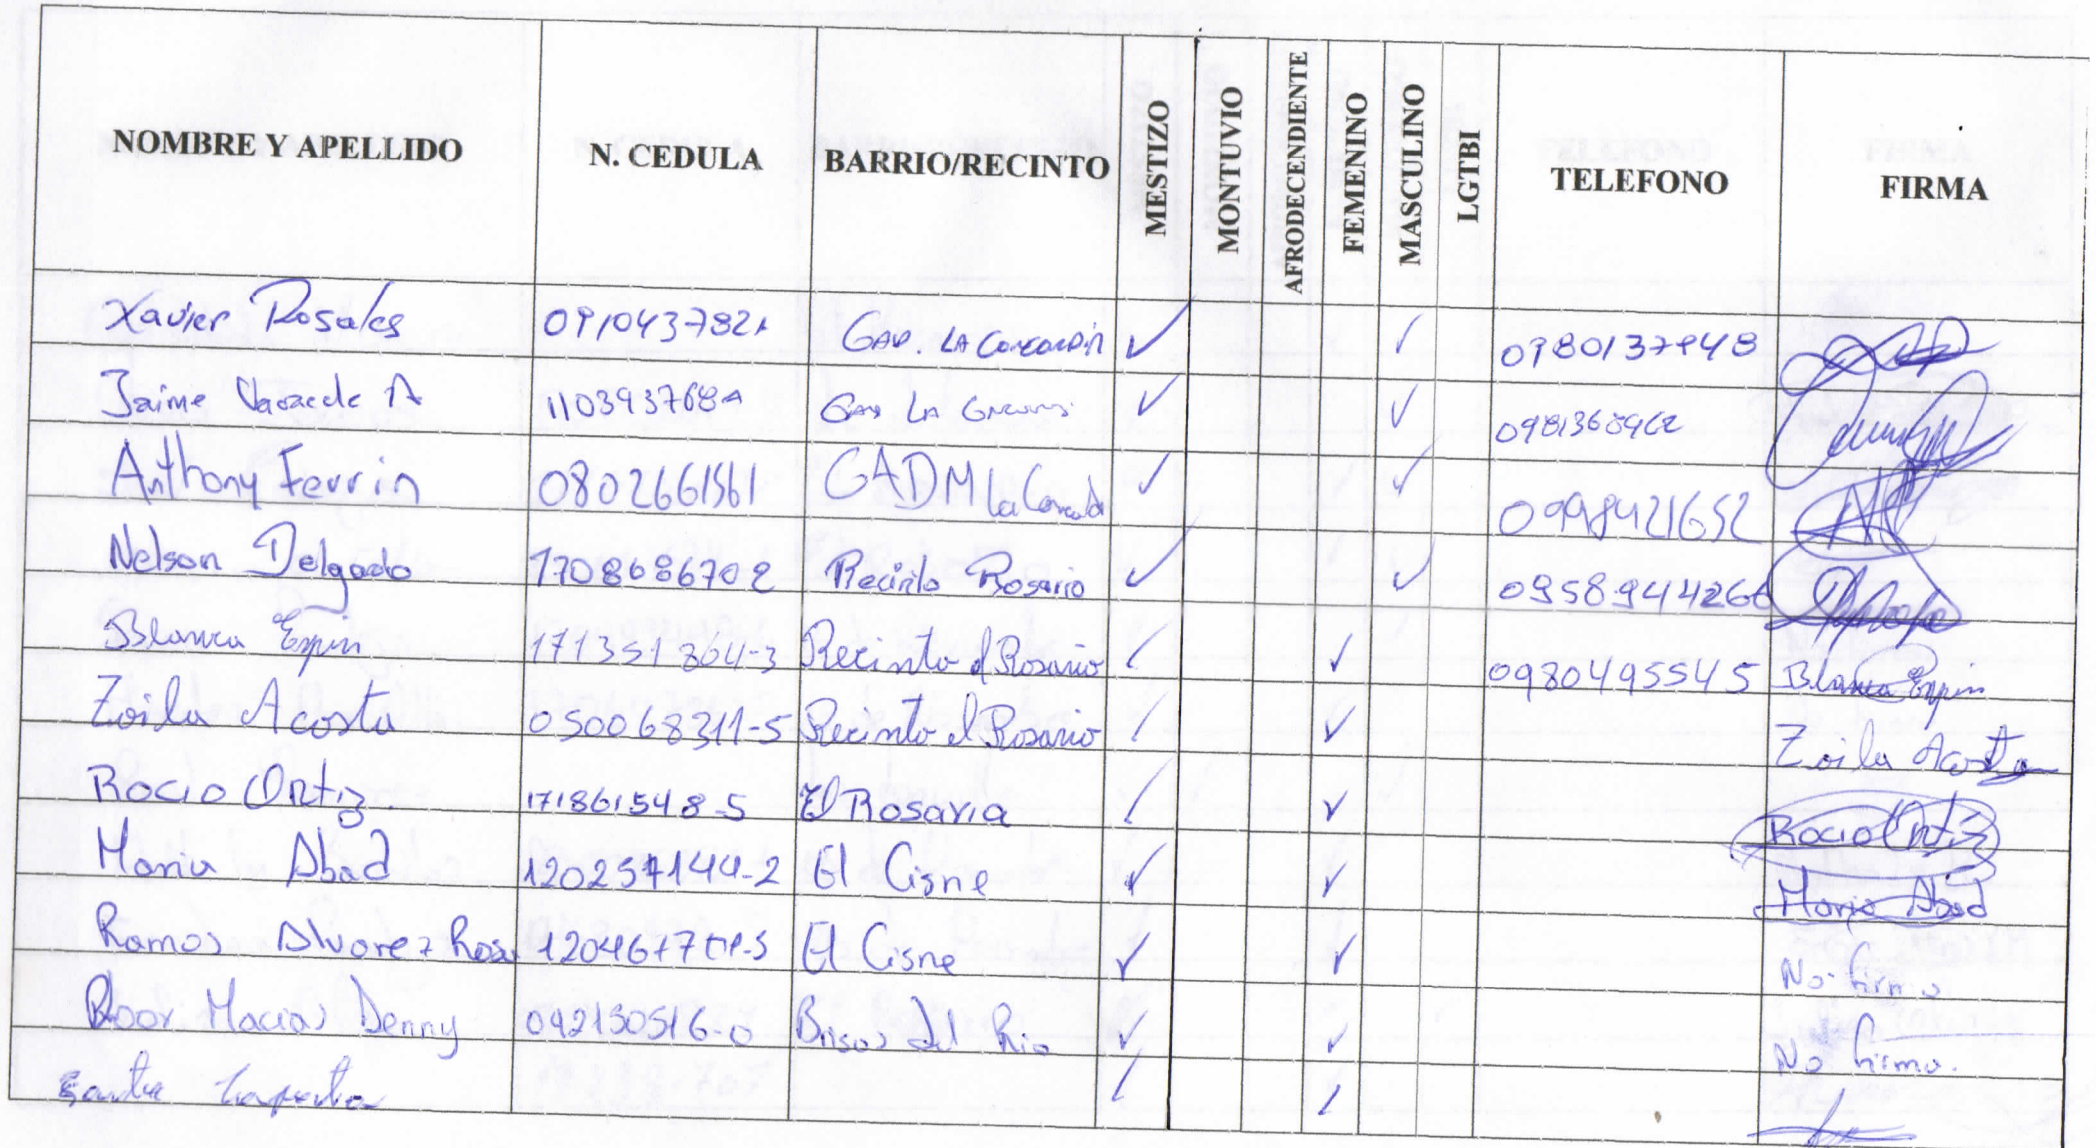 NOMBRE Y APELLIDO N. CEDULA BARRIO/RECINTO MESTIZO MONTUVIO AFRODECENDIENTE FEMENINO MASCULINO LGTBI TELEFONO FIRMA
Xavier Rosales 0910437821 GAD. LA CONCORDIA ✓ ✓ 0980137948
Jaime A 1103937684 GAD La ✓ ✓ 0981368962
Anthony Ferrin 0802661561 GADM La Concord ✓ ✓ 0998421652
Nelson Delgado 1708686702 Recinto Rosario ✓ ✓ 0958944266
Blanca Espin 171351864-3 Recinto el Rosario ✓ ✓ 0980495545 Blanca Espin
Zoila Acosta 050068311-5 Recinto el Rosario ✓ ✓ Zoila Acosta
Rocio Ortiz 171861548-5 El Rosario ✓ ✓ Rocio Ortiz
Maria Abad 120257144-2 El Cisne ✓ ✓ Maria Abad
Ramos Alvarez Rosa El Cisne ✓ ✓ No firma
Loor Macias Denny 092130516-0 Brisas del Rio ✓ ✓ No firma.
✓ ✓